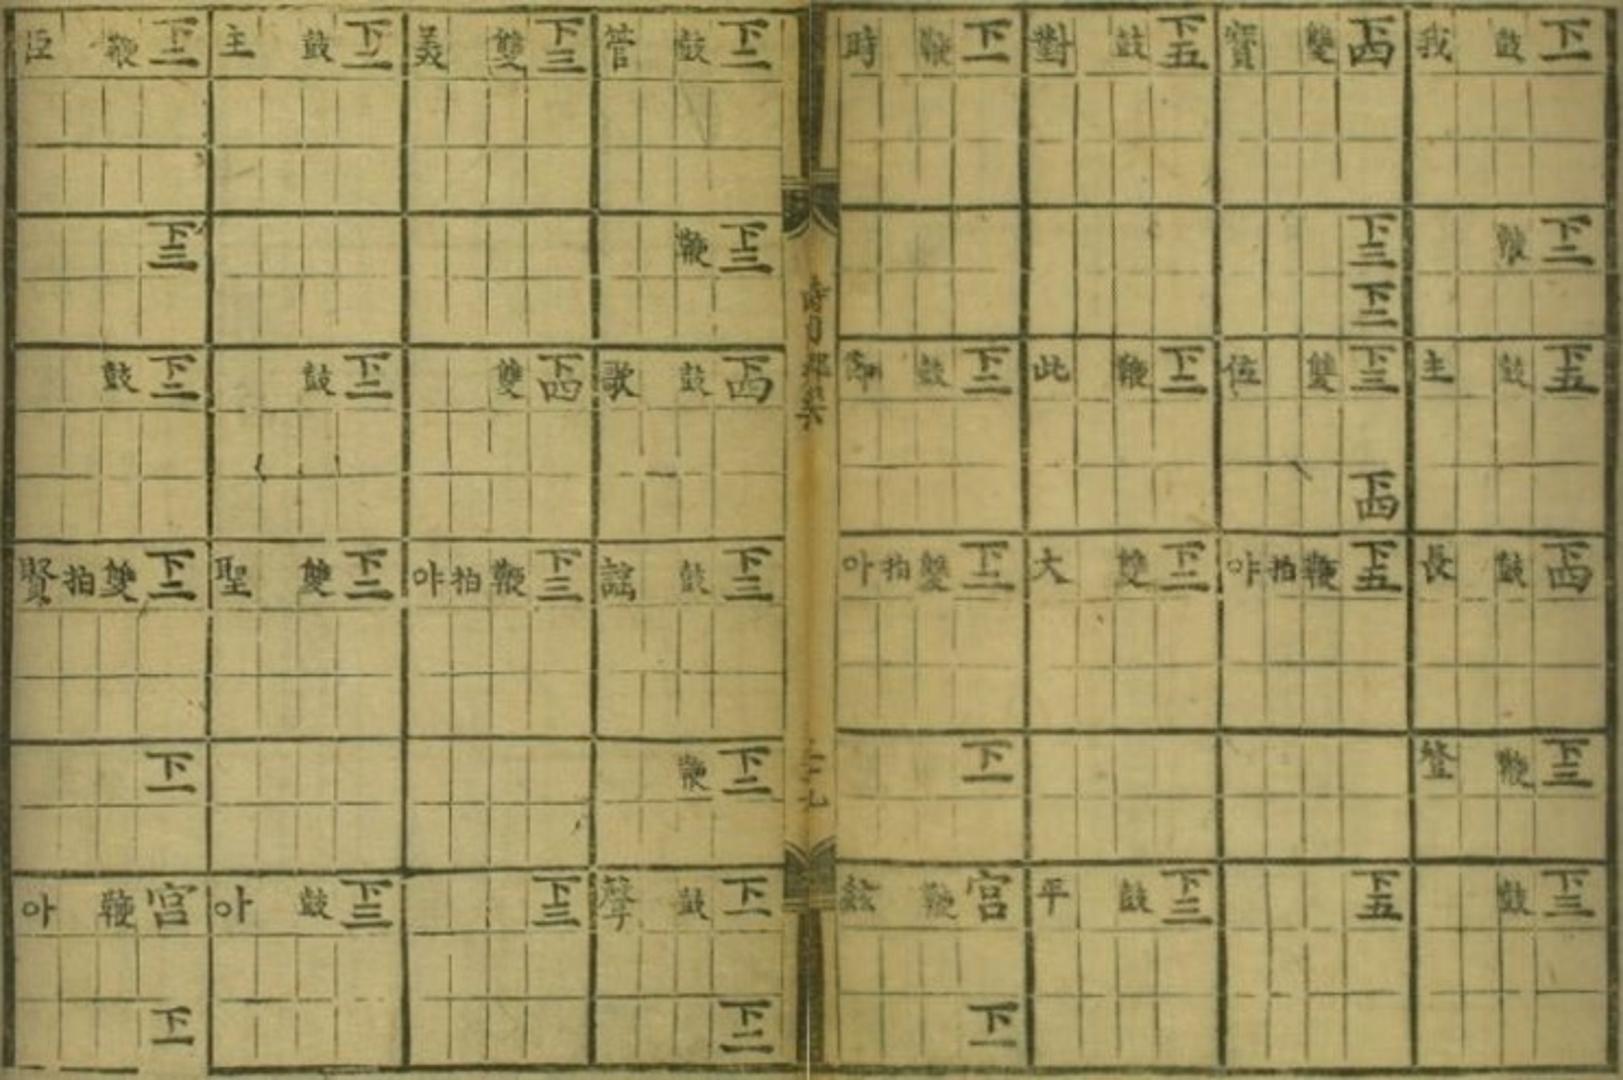 下一 下二 下五 下四 下三 下三
鼓 鞭 鼓 鼓 鞭 鼓
我 主 長 登
下四 下三 下二 下三 下四 下五 下五
雙 雙 鞭
拍
寶 位 야
下五 下二 下二 下三
鼓 鞭 雙 鼓
對 此 大 平
下一 下二 下二 下一 宮 下一
鞭 鼓 雙 鞭
拍
時 節 아 絃
時用鄕樂
下二 下三 下四 下三 下二 下一 下二
鼓 鞭 鼓 鼓 鞭 鼓
管 歌 謠 聲
下三 下四 下三 下三
雙 雙 鞭
拍
美 야
下二 下二 下二 下三
鼓 鼓 雙 鼓
主 聖 아
下二 下三 下二 下二 下一 宮 下一
鞭 鼓 雙 鞭
拍
臣 賢 아